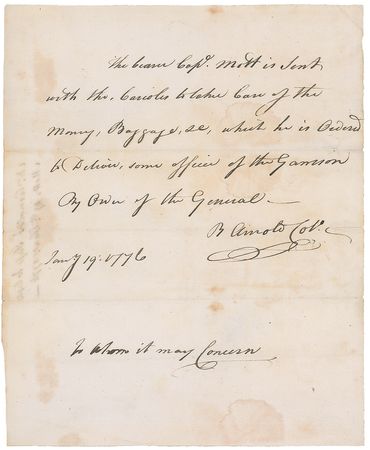 The bearer Capt. Mott is Sent
with the, Carioles to take Care of the
Money, Baggage, &c, which he is Ordered
to Deliver, some officer of the Garrison
By Order of the General.
B Arnold Col.
Jany 19. 1776
to whom it may Concern